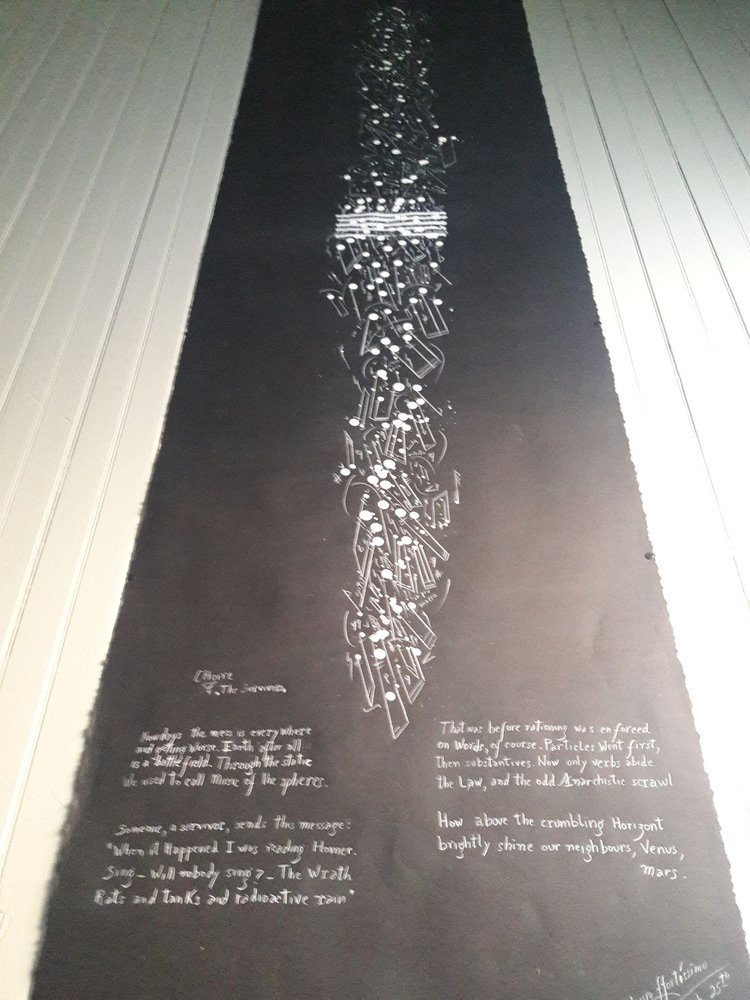 The Survivor.
Nowadays the mess is everywhere
and getting worse. Earth after all
is a battlefield. Through the static
We used to call Music of the spheres.
Someone, a survivor, sends this message:
"When it Happened I was reading Homer.
Sing – Will nobody sing? – The Wrath
Rats and tanks and radioactive rain"
That was before rationing was enforced
on Words, of course. Particles Went first,
then substantives. Now only verbs abide
the Law, and the odd Anarchistic scrawl
How above the crumbling Horizont
brightly shine our neighbours, Venus,
Mars.
25th